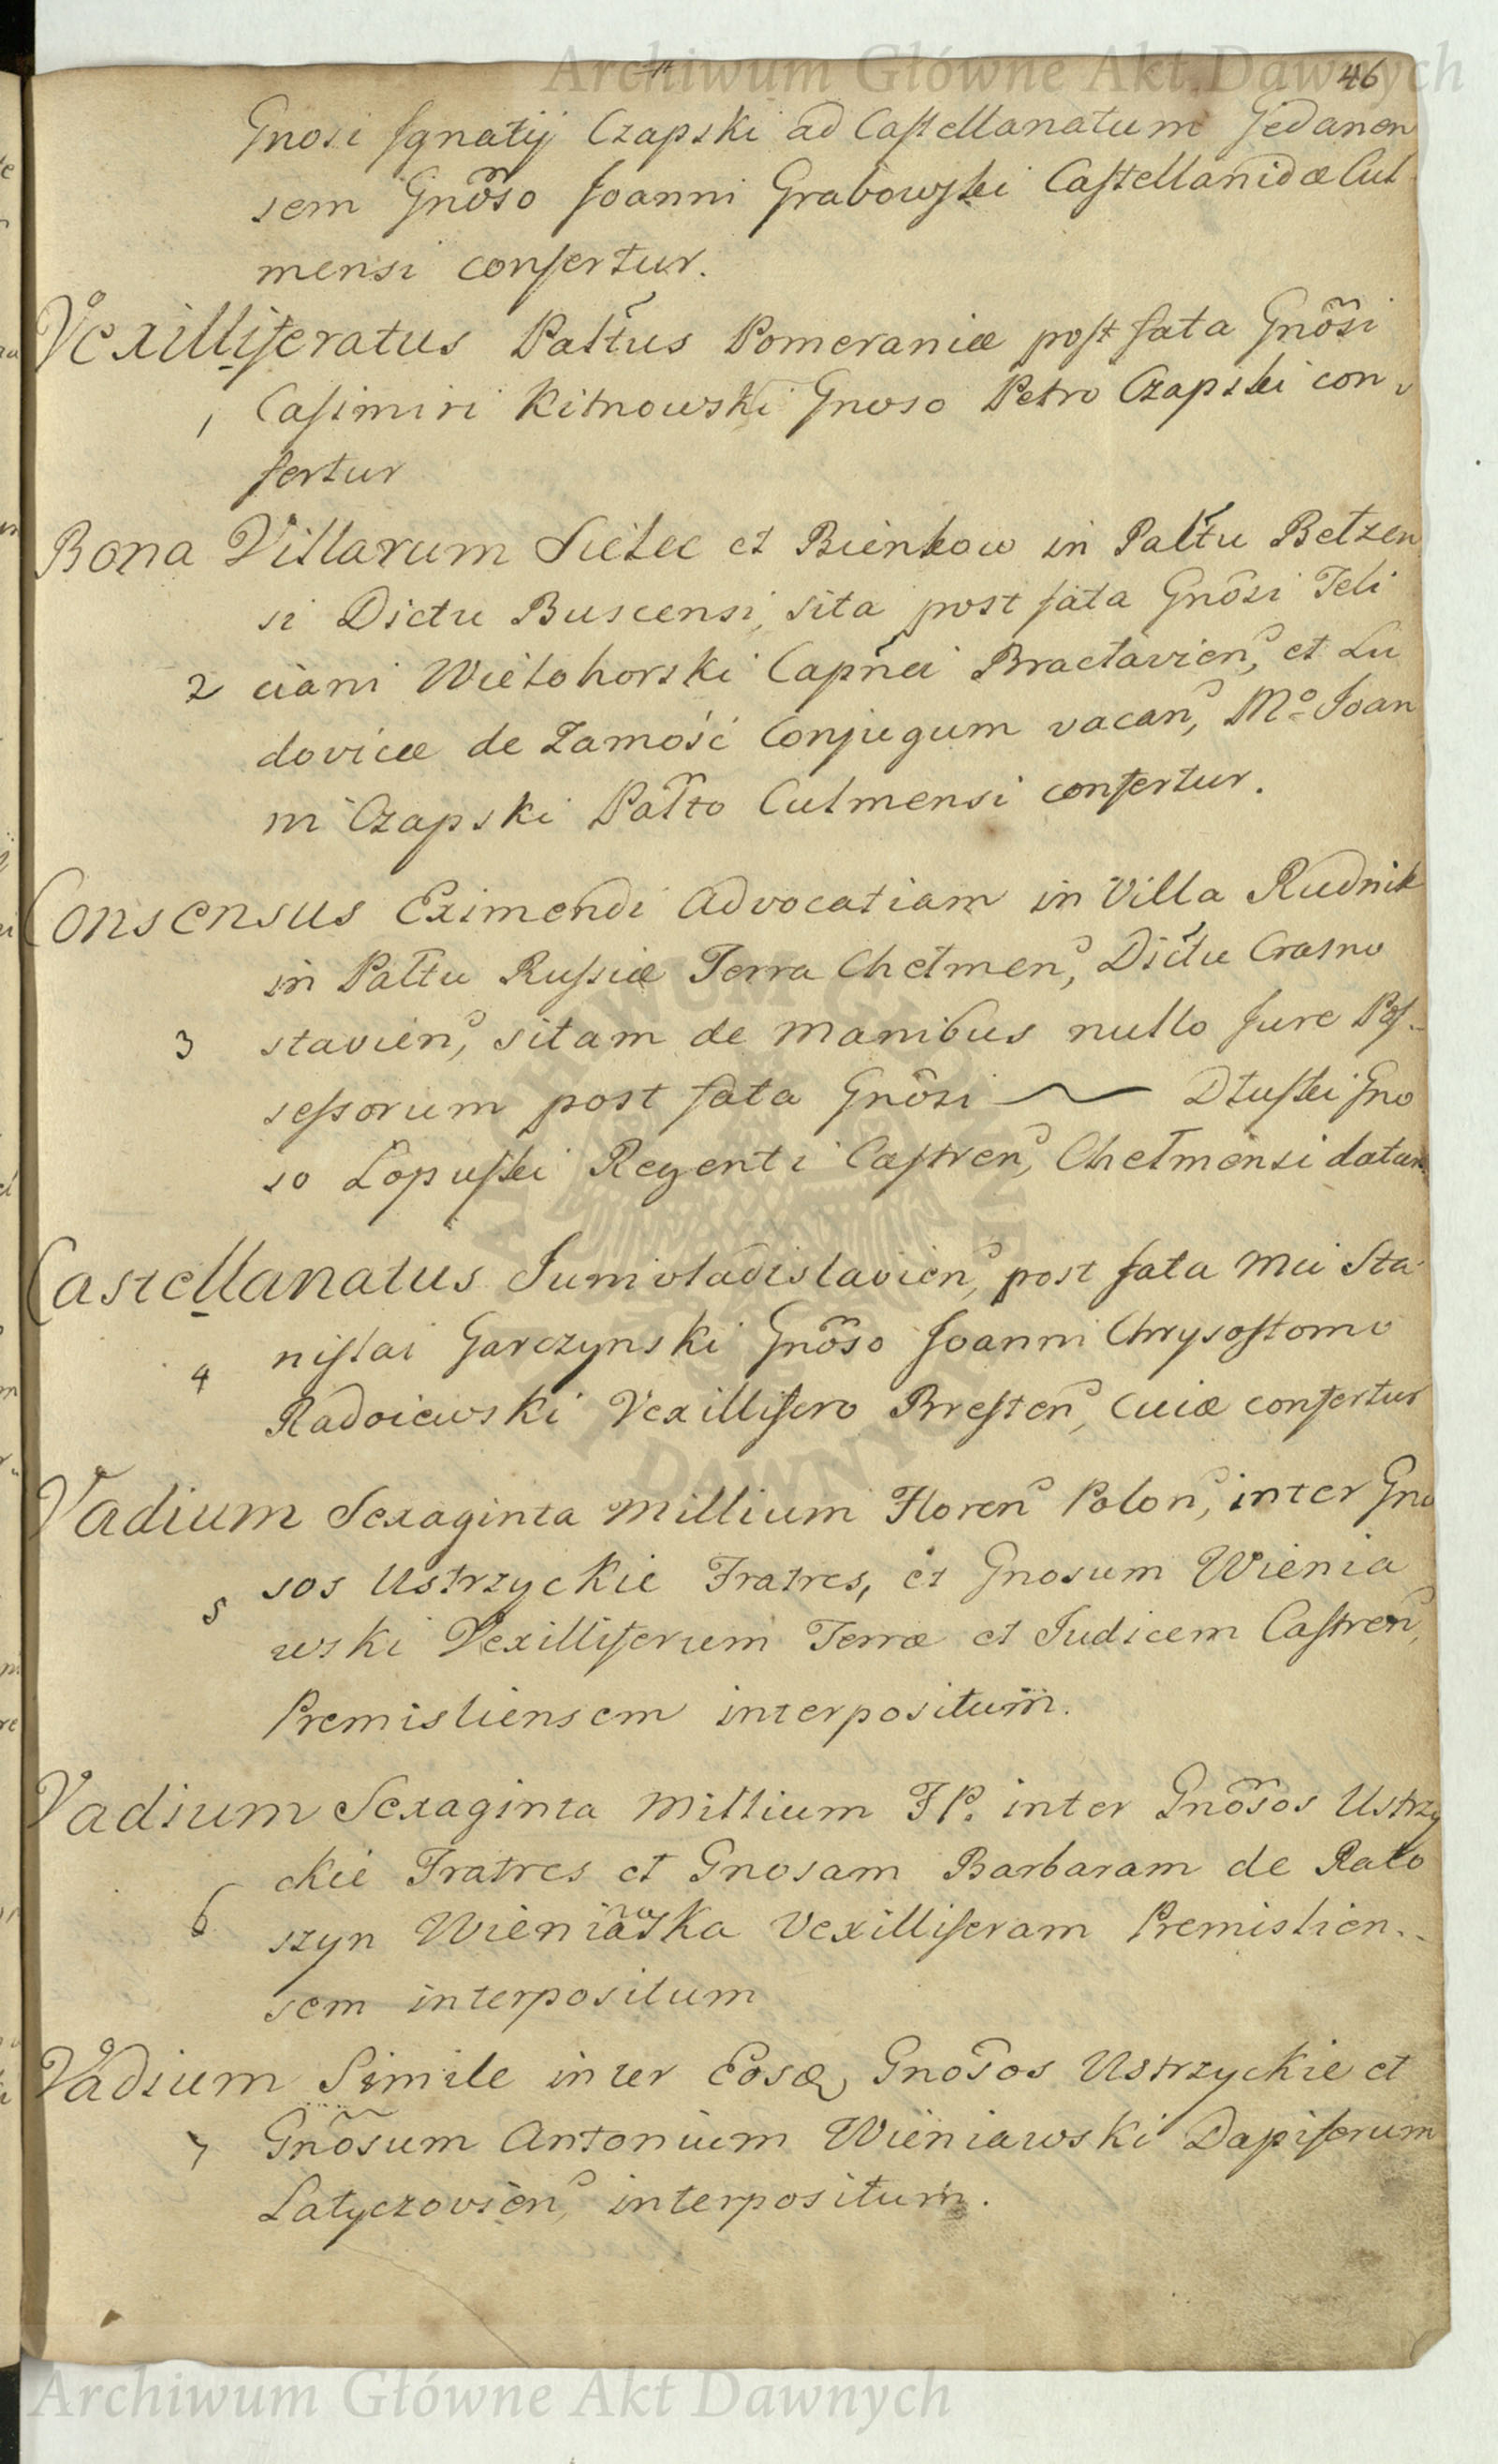 Archiwum Główne Akt Dawnych
46
Gnosi Ignatij Czapski ad Castellanatum Gedanen
sem Gnõso Joanni Grabowski Castellanidæ Cul
mensi confertur.
Vexilliferatus Paltus Pomeraniæ post fata Gnõsi
1 Casimiri Kitnowski Gnoso Petro Czapski con
fertur
Bona Villarum Sielec et Bienkow in Paltu Belzen
si Dictu Buscensi, sita post fata Gnõsi Feli
2 ciani Wielohorski Capñei Braclavien, et Lu
dovicæ de Zamość Conjugum vacan, Mo Joan
ni Czapski Palto Culmensi confertur.
Consensus Eximendi Advocatiam in Villa Rudnik
in Paltu Russiæ Terra Chelmen, Dictu Crasno
3 stavien, sitam de manibus nullo Jure Pos
sessorum post fata Gnõsi ~ Dluski Gno
so Lopuski Regenti Castren, Chelmensi datur
Castellanatus Junivladislavien, post fata Mci Sta
4 nislai Garczynski Gnõso Joanni Chrysostomo
Radoiewski Vexillifero Bresten, Cuiæ confertur
Vadium Sexaginta Millium Floren Polon, inter Gno
5 sos Ustrzyckie Fratres, et Gnosum Wienia
wski Vexilliferum Terræ et Judicem Castren,
Premisliensem interpositum.
Vadium Sexaginta Millium FP. inter Gnõsos Ustrzy
ckie Fratres et Gnosam Barbaram de Rato
6 szyn Wieniawska Vexilliferam Premislien
sem interpositum
Vadium Simile inter Eosq, Gnõsos Ustrzyckie et
7 Gnõsum Antonium Wieniawski Dapiferum
Latyczovien, interpositum.
Archiwum Główne Akt Dawnych